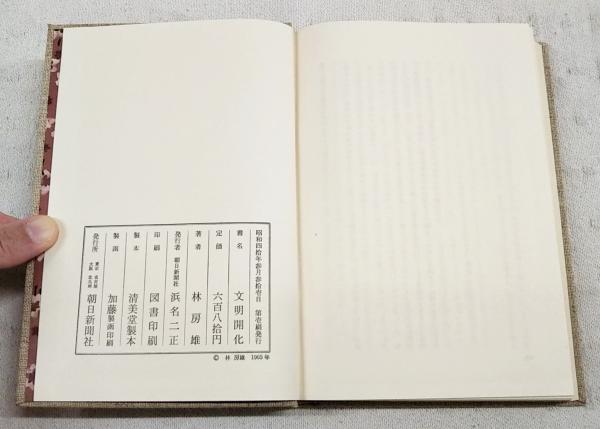 昭和四拾年参月参拾壱日 第壱刷発行
書名 文明開化
定価 六百八拾円
著者 林房雄
発行者 朝日新聞社 浜名二正
印刷 図書印刷
製本 清美堂製本
製函 加藤製函印刷
発行所 東京 名古屋 大阪 北九州 朝日新聞社
© 林 房雄 1965年